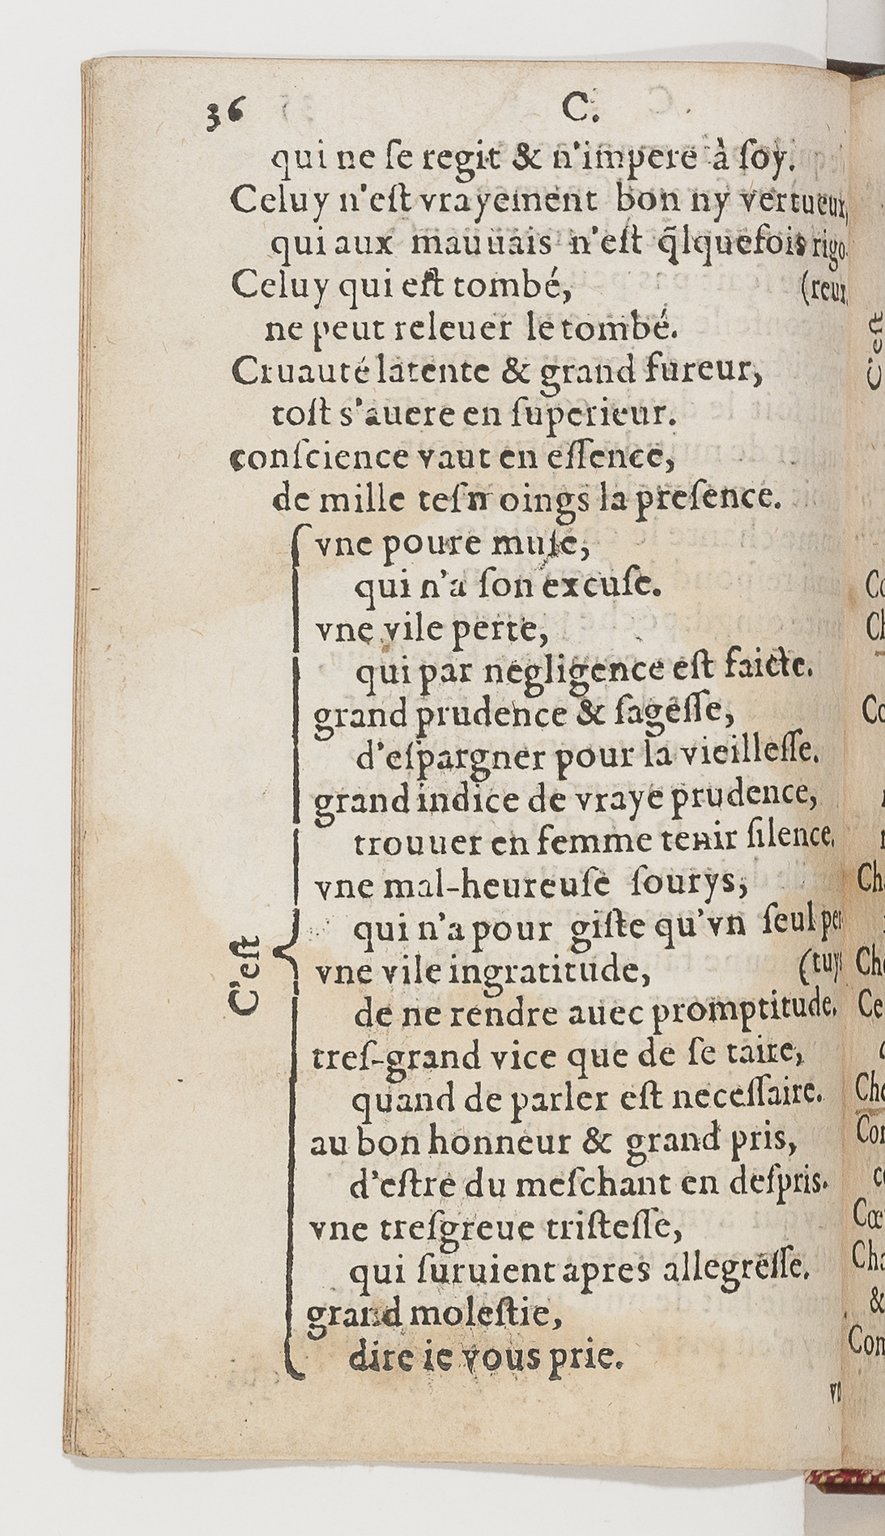 36 C.
qui ne ſe regit & n'impere à ſoy.
Celuy n'eſt vrayement bon ny vertueux,
qui aux mauuais n'eſt q̃lquefois rigo-
Celuy qui eſt tombé, (reux,
ne peut releuer le tombé.
Cruauté latente & grand fureur,
toſt s'auere en ſuperieur.
conſcience vaut en eſſence,
de mille teſmoings la preſence.
C'eſt
vne poure muſe,
qui n'a ſon excuſe.
vne vile perte,
qui par negligence eſt faicte.
grand prudence & ſageſſe,
d'eſpargner pour la vieilleſſe.
grand indice de vraye prudence,
trouuer en femme tenir ſilence.
vne mal-heureuſe ſourys,
qui n'a pour giſte qu'vn ſeul per
vne vile ingratitude, (tuys
de ne rendre auec promptitude.
treſ-grand vice que de ſe taire,
quand de parler eſt neceſſaire.
au bon honneur & grand pris,
d'eſtre du meſchant en deſpris.
vne treſgreue triſteſſe,
qui ſuruient apres allegreſſe.
grand moleſtie,
dire ie vous prie.